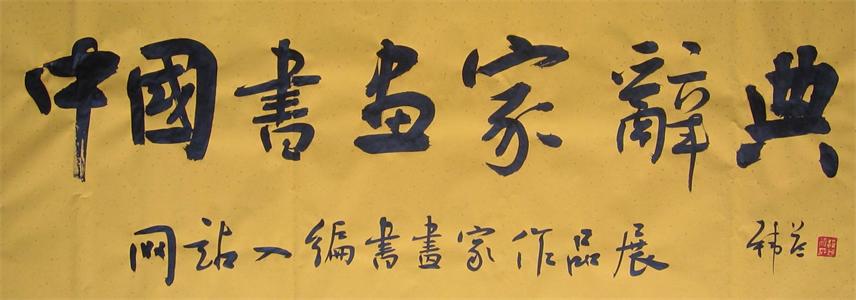 中國書画家辭典
网站入編書畫家作品展